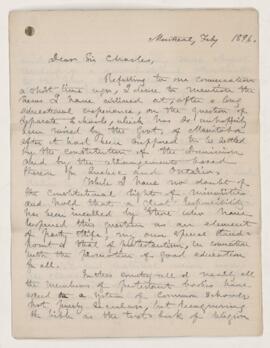 Montreal, Feby 1896.
Dear Sir Charles,
Referring to our conversation
a short time ago, I desire to mention the
views I have arrived at, after a long
educational experience, on the question of
separate schools, which has so unhappily
been raised by the Govt. of Manitoba
after it had been supposed to be settled
by the constitution of the Dominion
and by the arrangements based
thereon in Quebec and Ontario.
While I have no doubt of
the Constitutional rights of minorities
and hold that a great responsibility
has been incurred by those who have
reopened this question as an element
of party strife, my own special stand
point is that of protestantism, in connection
with the promotion of good education
for all.
In this country all or nearly all
the members of protestant bodies have
agreed on a system of Common Schools
not purely secular, but recognizing
the bible as the text book of religion